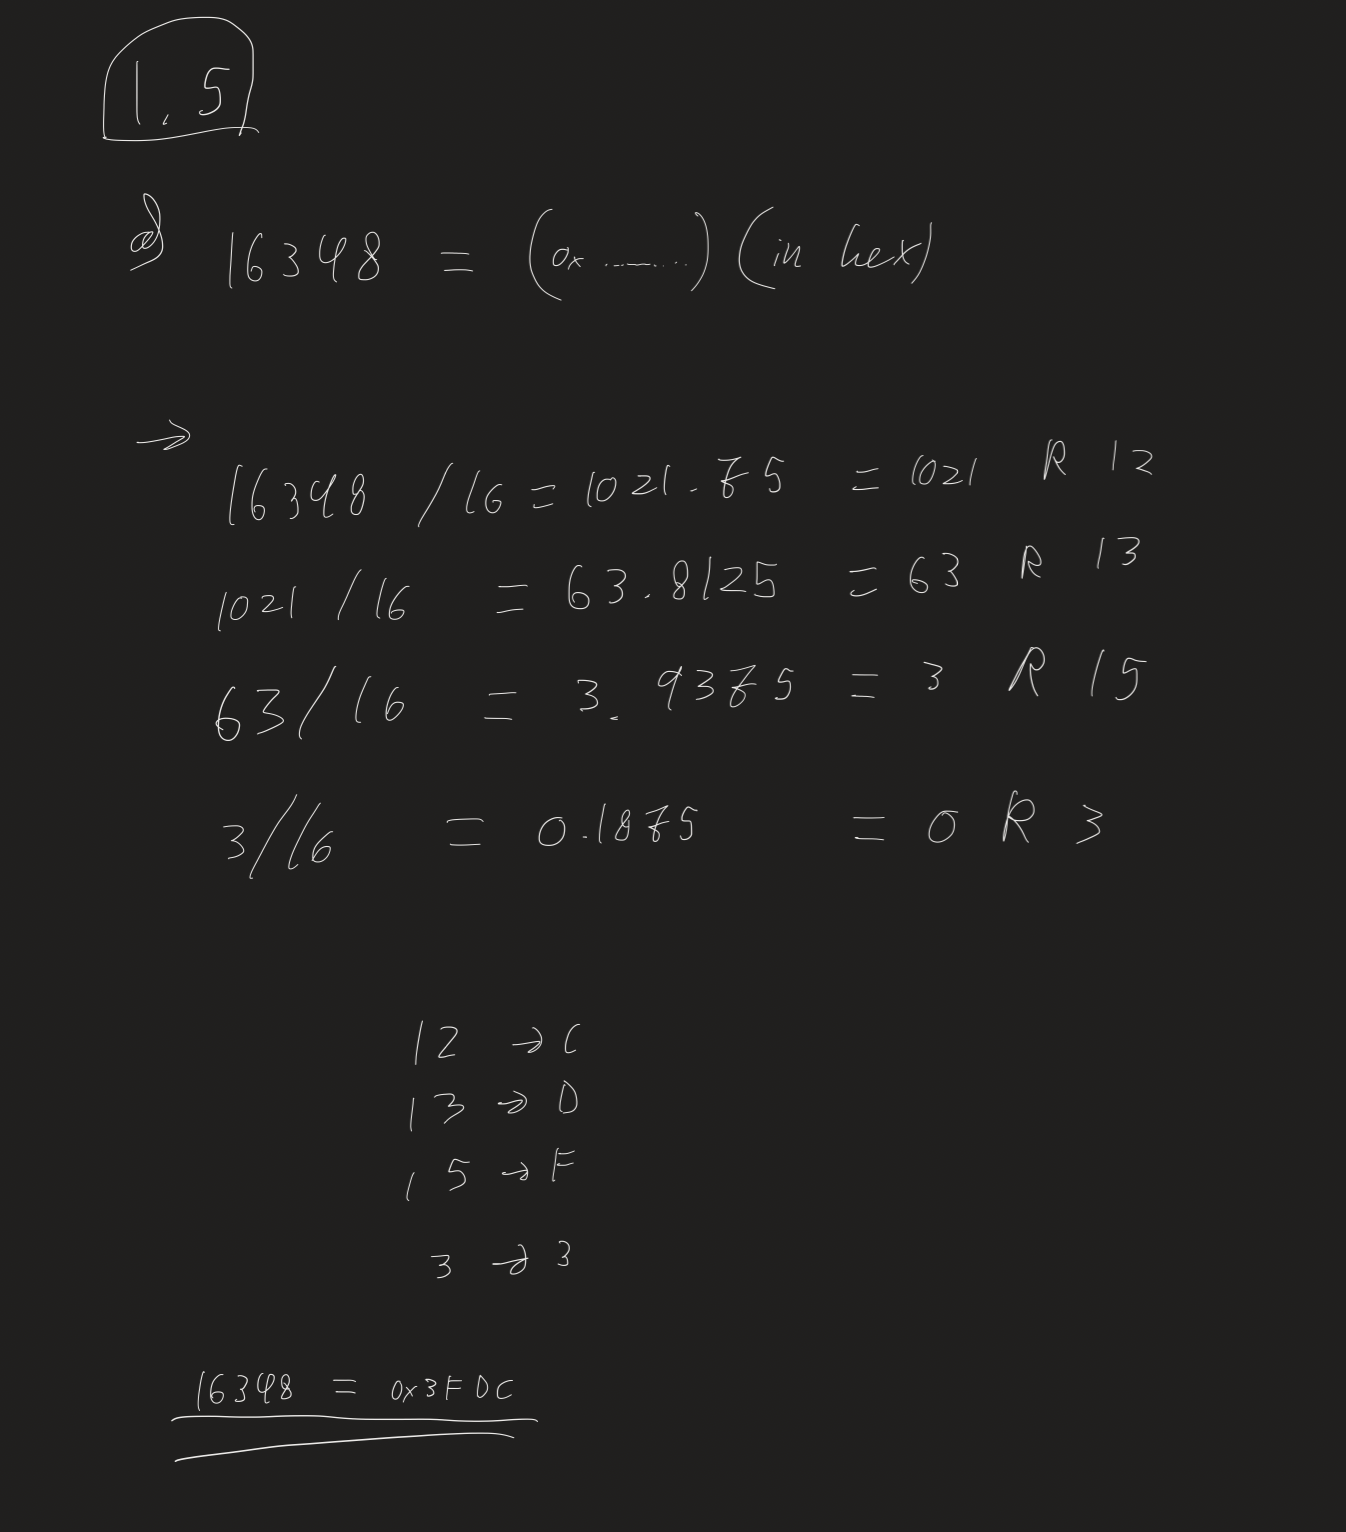 1.5
a) 16348 = (0x ..........) (in hex)
→
16348 / 16 = 1021.75 = 1021 R 12
1021 / 16 = 63.8125 = 63 R 13
63 / 16 = 3.9375 = 3 R 15
3/16 = 0.1875 = 0 R 3
12 → C
13 → D
15 → F
3 → 3
16348 = 0x3FDC